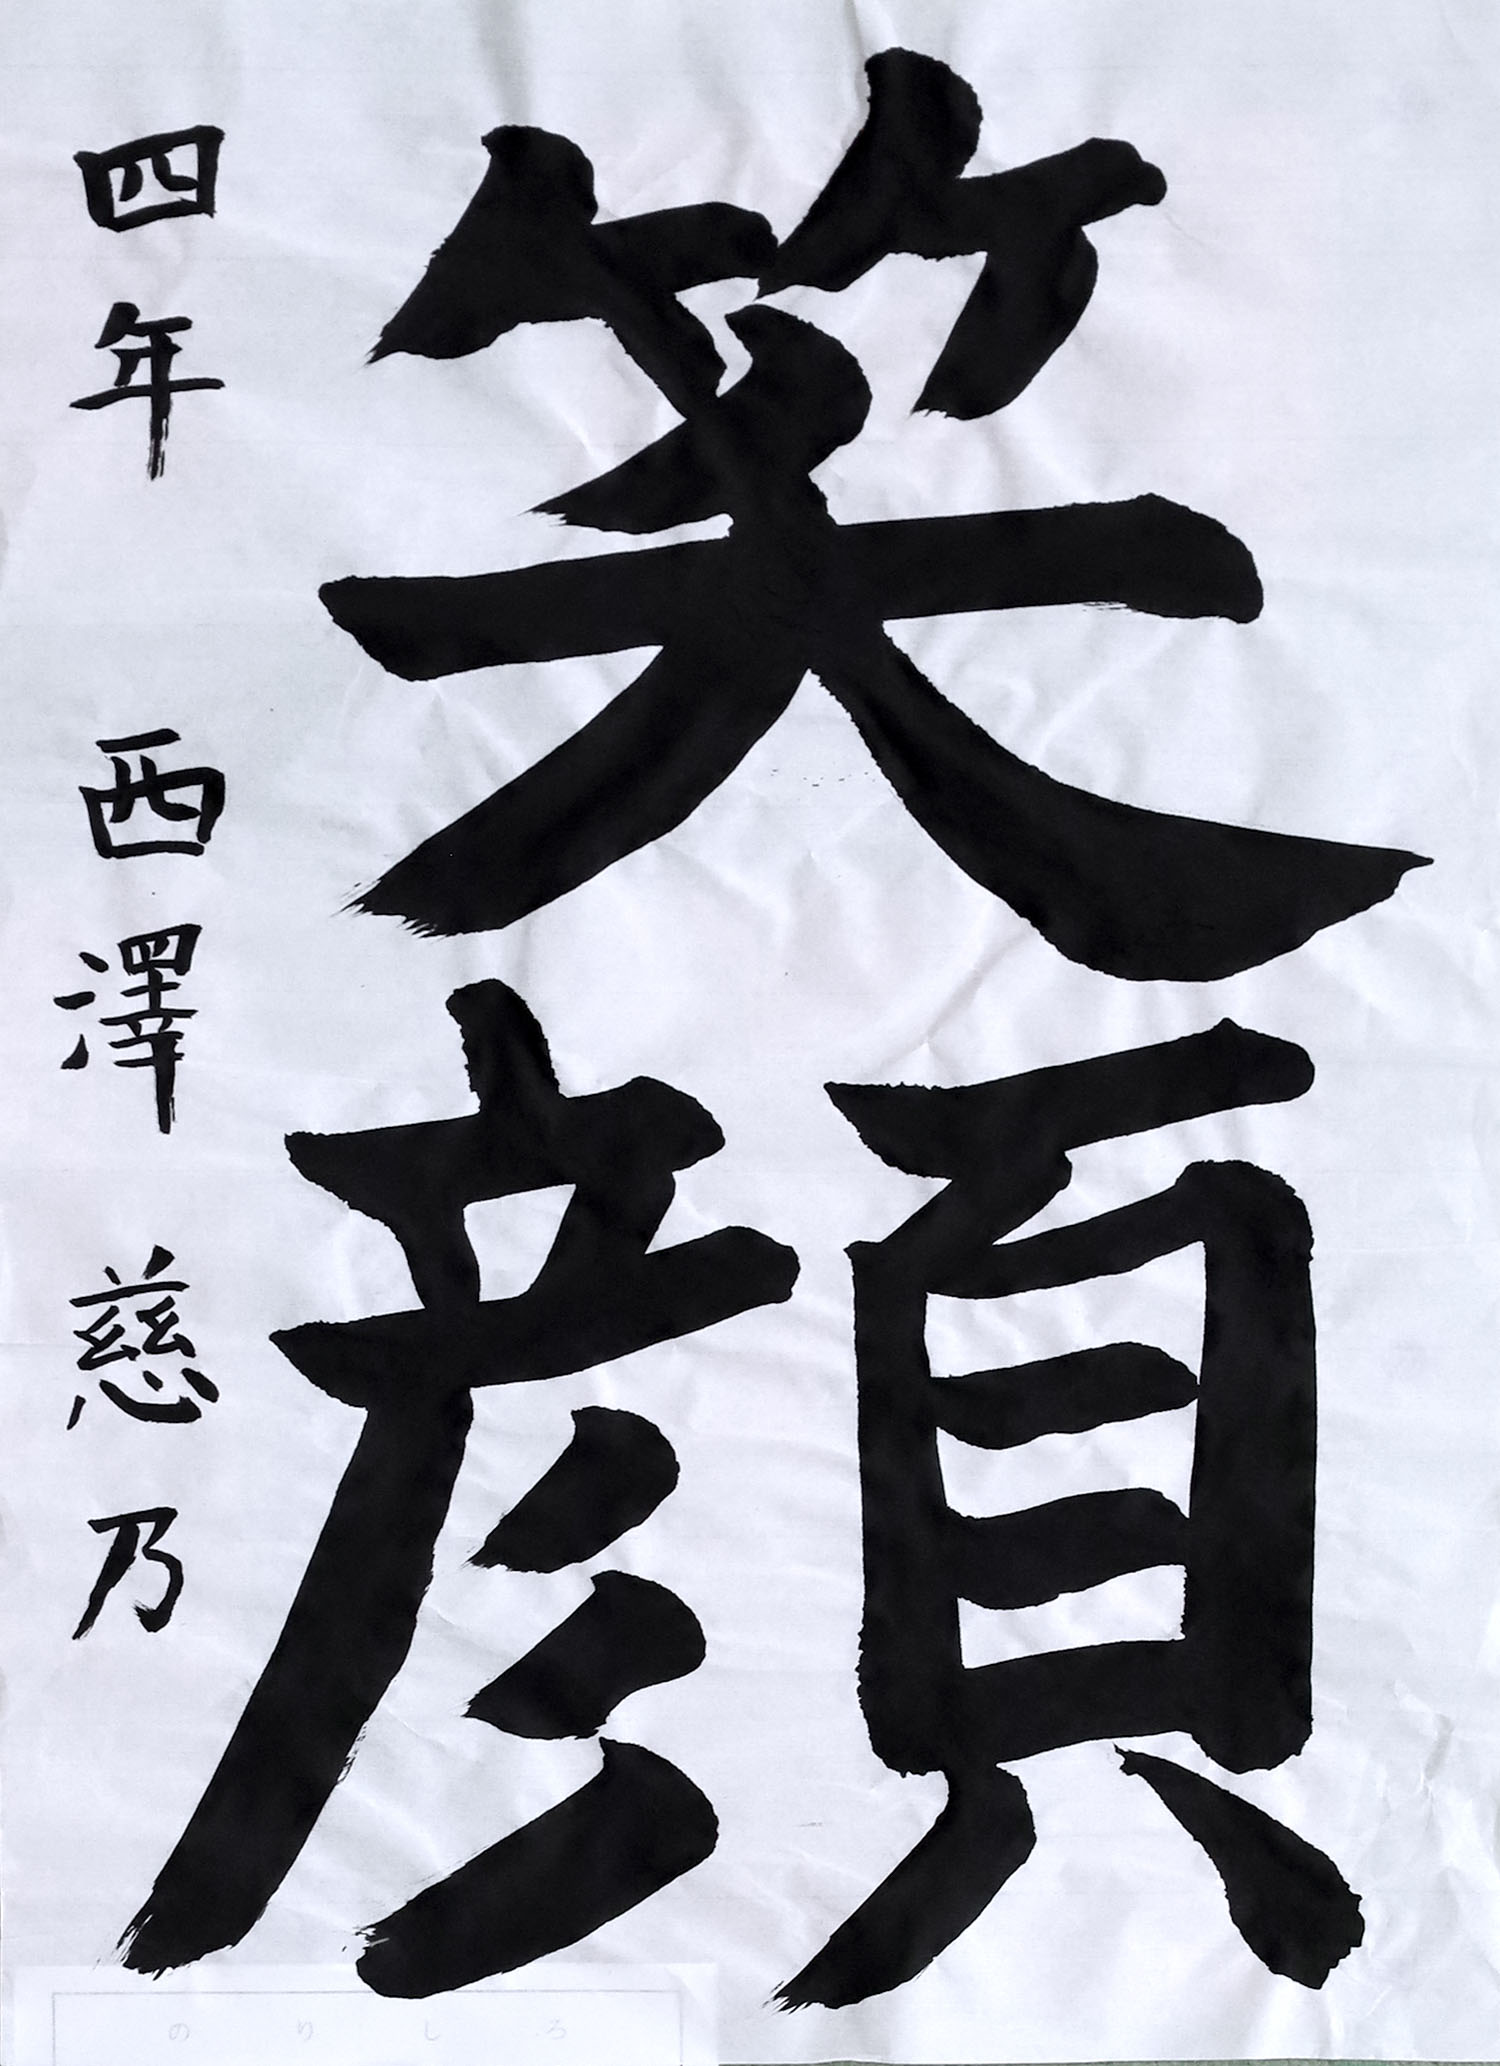 笑顔
四年 西澤 慈乃
のりしろ